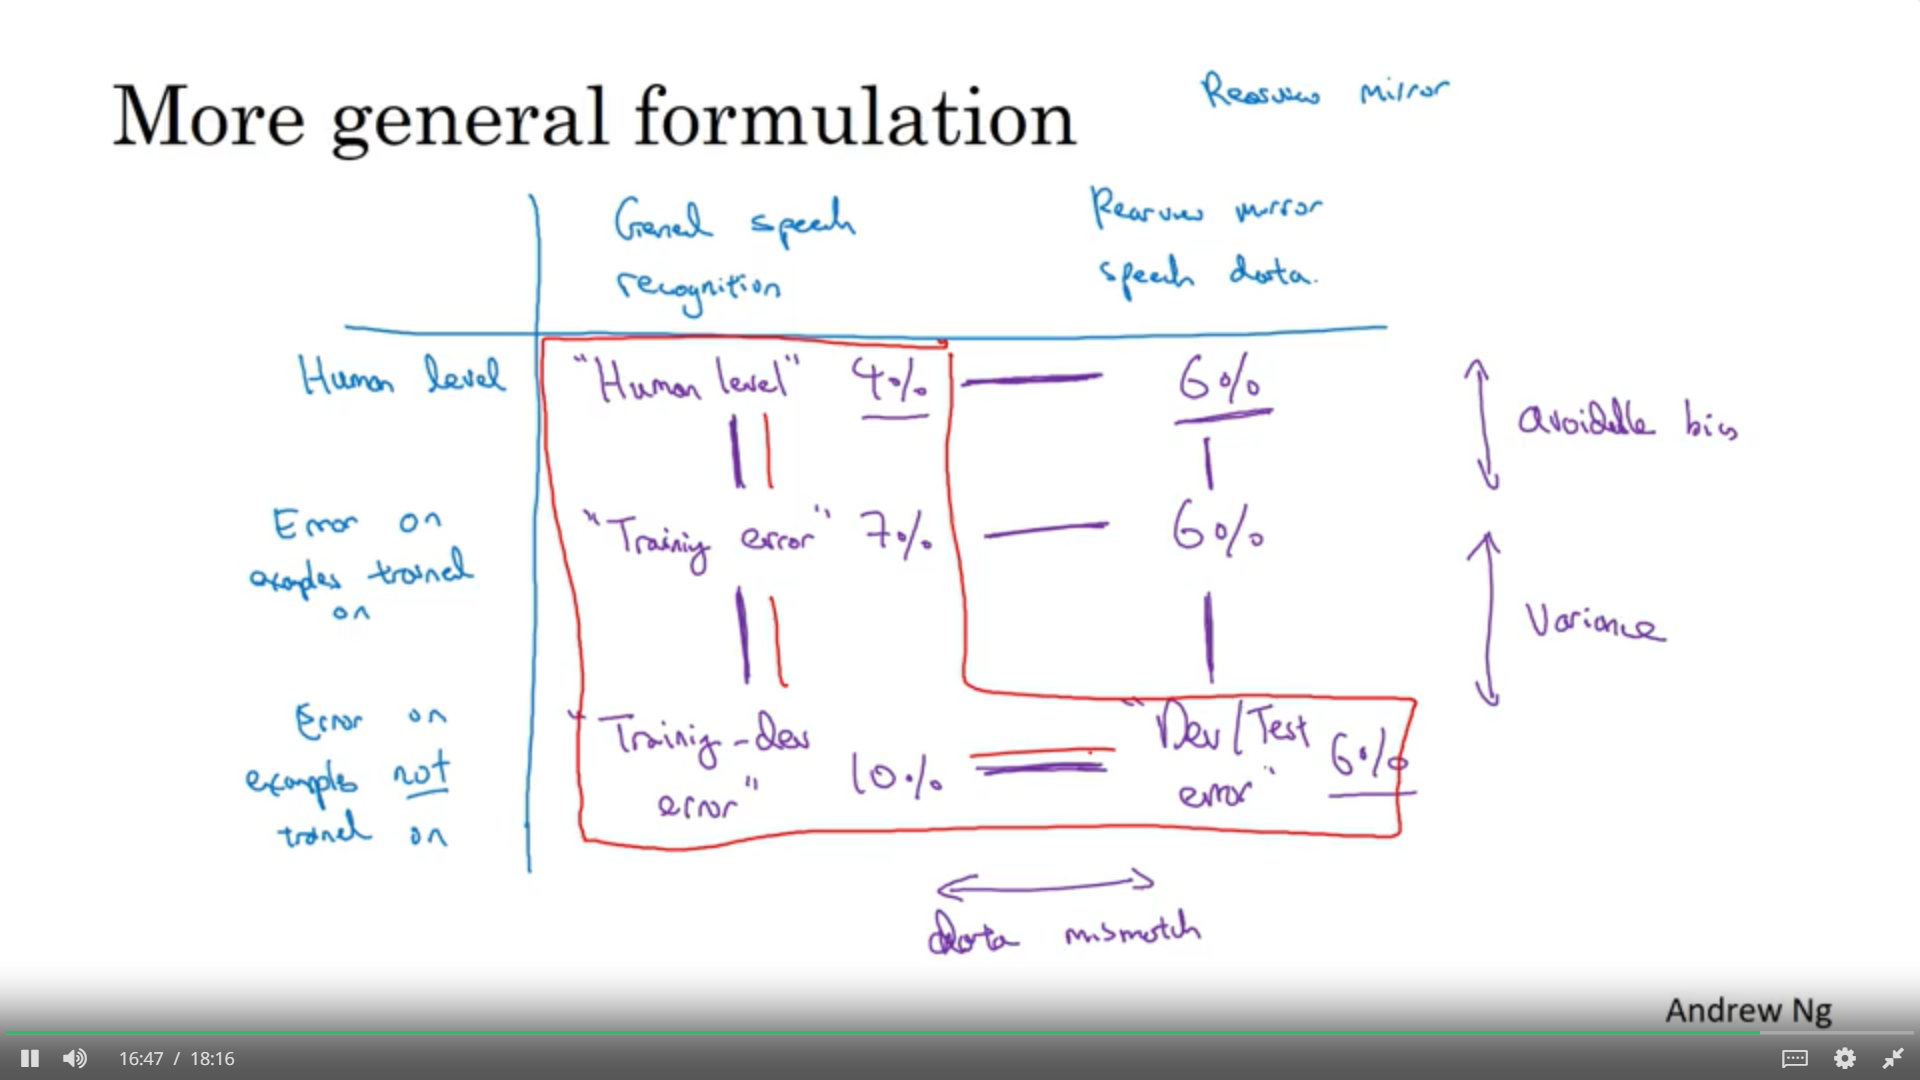 More general formulation
Rearview mirror
General speech
recognition
Rearview mirror
speech data.
Human level
"Human level" 4%
6%
avoidable bias
Error on
examples trained
on
"Training error" 7%
6%
Variance
Error on
examples not
trained on
"Training-dev
error"
10%
"Dev/Test
error"
6%
data mismatch
Andrew Ng
16:47 / 18:16